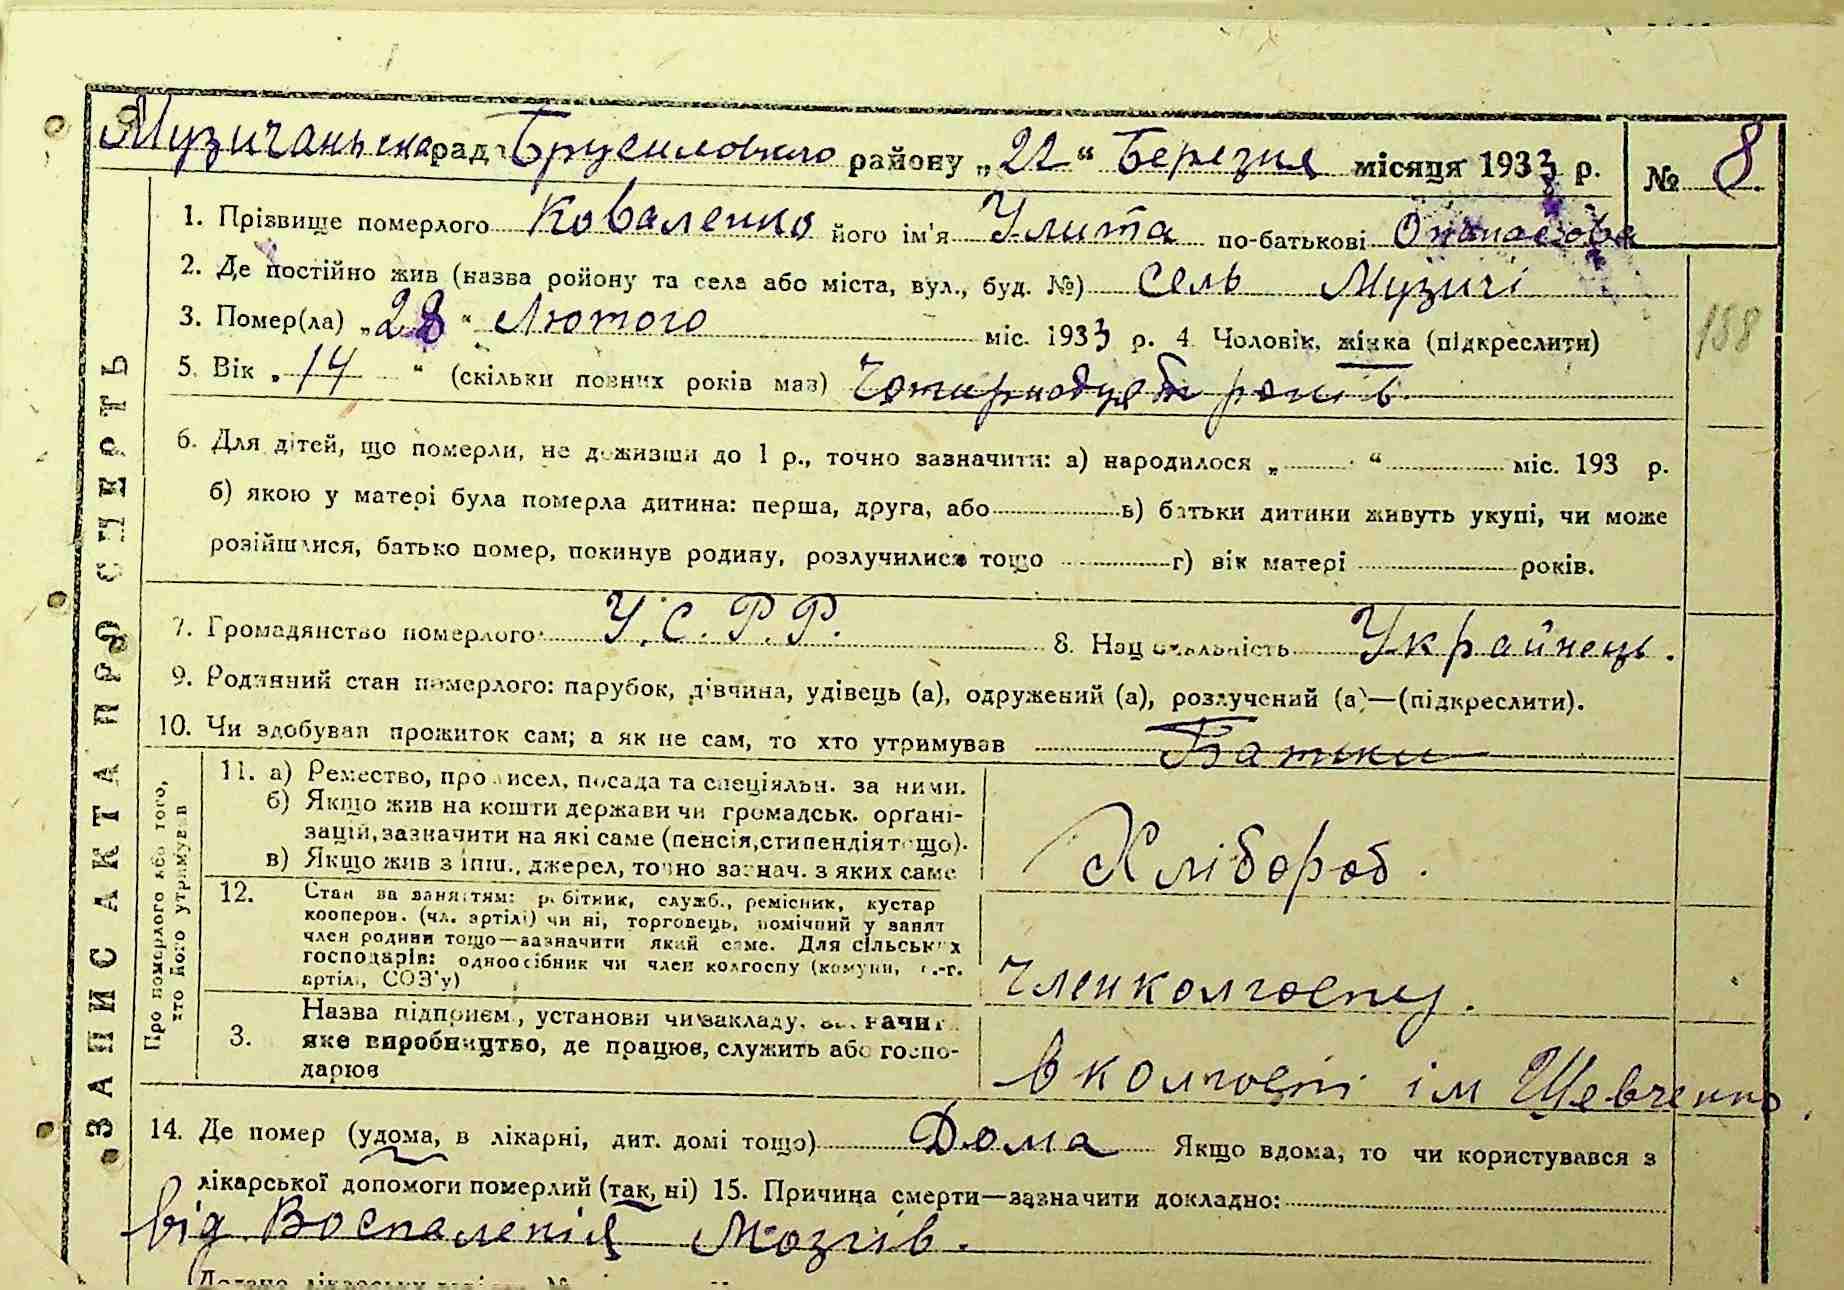 Музичаньска рад Брусиловсько району „22“ Березня місяця 1933 р. № 8.
1. Прізвище померлого Коваленко його ім'я Улита по-батькові Опанасова
2. Де постійно жив (назва ройону та села або міста, вул., буд. №) сель Музичі
3. Помер(ла) „28“ Лютого міс. 1933 р. 4. Чоловік, жінка (підкреслити)
158
5. Вік „14“ (скільки повних років мав) Чотирнадцять років
6. Для дітей, що померли, не доживши до 1 р., точно зазначити: а) народилося „ “ міс. 193 р.
б) якою у матері була померла дитина: перша, друга, або в) батьки дитини живуть укупі, чи може
розійшлися, батько помер, покинув родину, розлучилися тощо г) вік матері років.
7. Громадянство померлого У.С.Р.Р. 8. Національність Украйнець.
9. Родинний стан померлого: парубок, дівчина, удівець (а), одружений (а), розлучений (а)—(підкреслити).
10. Чи здобував прожиток сам; а як не сам, то хто утримував Батьки
11. а) Ремество, промисел, посада та спеціяльн. за ними.
б) Якщо жив на кошти держави чи громадськ. органі-
зацій, зазначити на які саме (пенсія, стипендія тощо).
в) Якщо жив з інш., джерел, точно зазнач. з яких саме
Хлібороб.
12. Стан за заняттям: робітник, служб., ремісник, кустар
кооперов. (чл. артілі) чи ні, торговець, помічний у занят
член родини тощо—зазначити який саме. Для сільських
господарів: одноосібник чи член колгоспу (комуни, с.-г.
артілі, СОЗ'у)
Член колгоспу.
3. Назва підприєм., установи чи закладу, зазначити
яке виробництво, де працює, служить або госпо-
дарює
в колгоспі ім Шевченко.
14. Де помер (удома, в лікарні, дит. домі тощо) Дома Якщо вдома, то чи користувався з
лікарської допомоги померлий (так, ні) 15. Причина смерти—зазначити докладно:
від Воспаления Мозгів.
ЗАПИС АКТА ПРО СМЕРТЬ
Про померлого або того,
хто його утримував